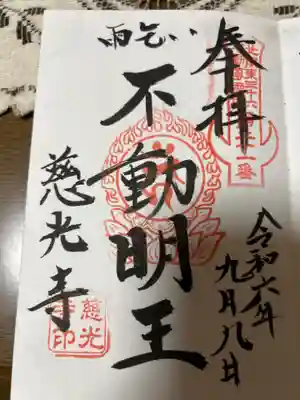 奉拝
令和六年
九月八日
雨乞い
不動明王
慈光寺
慈光
寺印